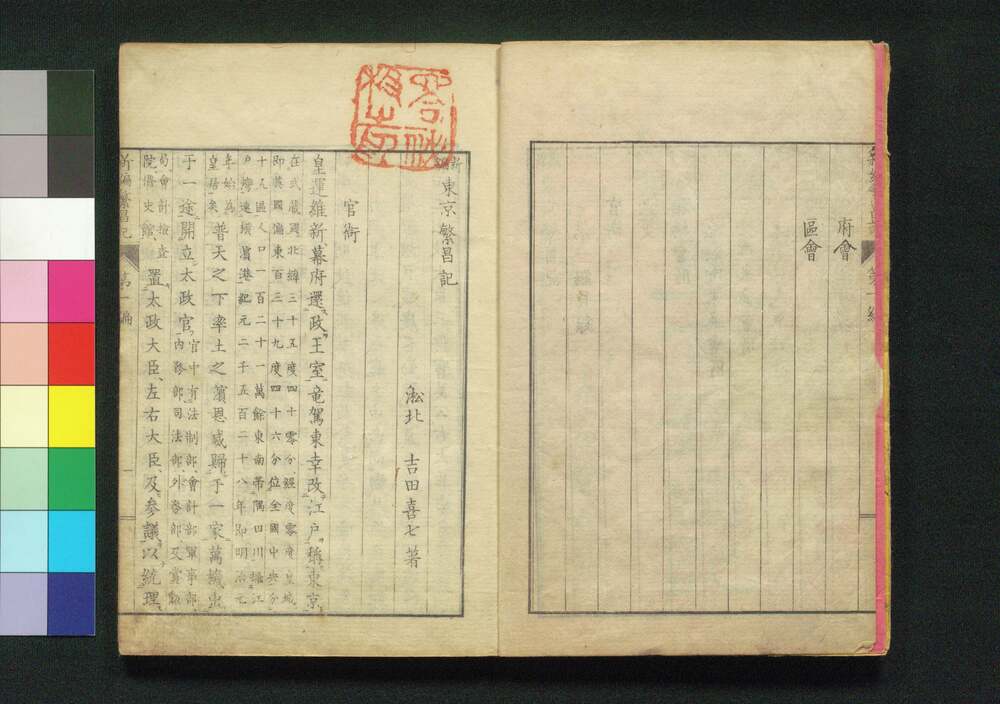 府會
區會
新編東京繁昌記
淞北 吉田喜七著
官衙
皇運維新、幕府還政、王室竜駕東幸、改江戶、稱東京、
在武蔵國北緯三十五度四十零分經度零度皇城
即英國偏東百三十九度四十六分位全國中央分
十五區人口一百二十一萬餘東南帯隅田川
灣連横濵港紀元二千五百二十八年即明治元
年始為
皇居矣
普天之下率土之濵恩威歸于一家萬機出
于一途、開立太政官、
官中有法制部、會計部軍事部、
内務部司法部、外務部及賞勲
局會計檢查
院修史館
置、太政大臣、左右大臣、及参議、以統理、
新編繁昌記
第一編